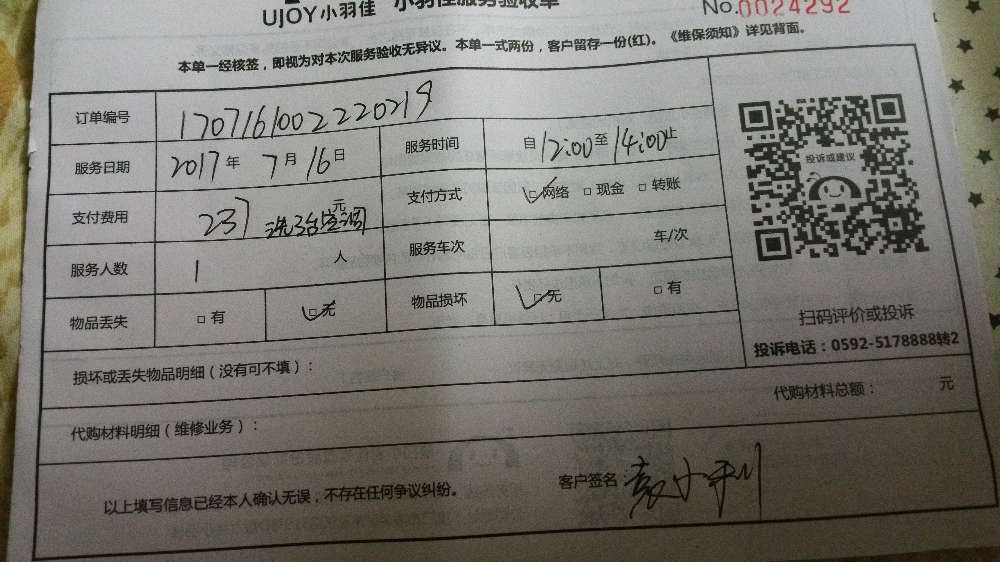 UJOY小羽佳 小羽佳服务验收单
No.0024292
本单一经核签，即视为对本次服务验收无异议。本单一式两份，客户留存一份(红)。《维保须知》详见背面。
订单编号 1707161002220219
服务日期 2017年 7月 16日 服务时间 自12:00至14:00止
支付费用 237元 洗3台空调 支付方式 □网络 □现金 □转账
服务人数 1 人 服务车次 车/次
物品丢失 □有 □无 物品损坏 □无 □有
投诉或建议
扫码评价或投诉
投诉电话：0592-5178888转2
损坏或丢失物品明细（没有可不填）：
代购材料明细（维修业务）： 代购材料总额： 元
以上填写信息已经本人确认无误，不存在任何争议纠纷。 客户签名：袁小